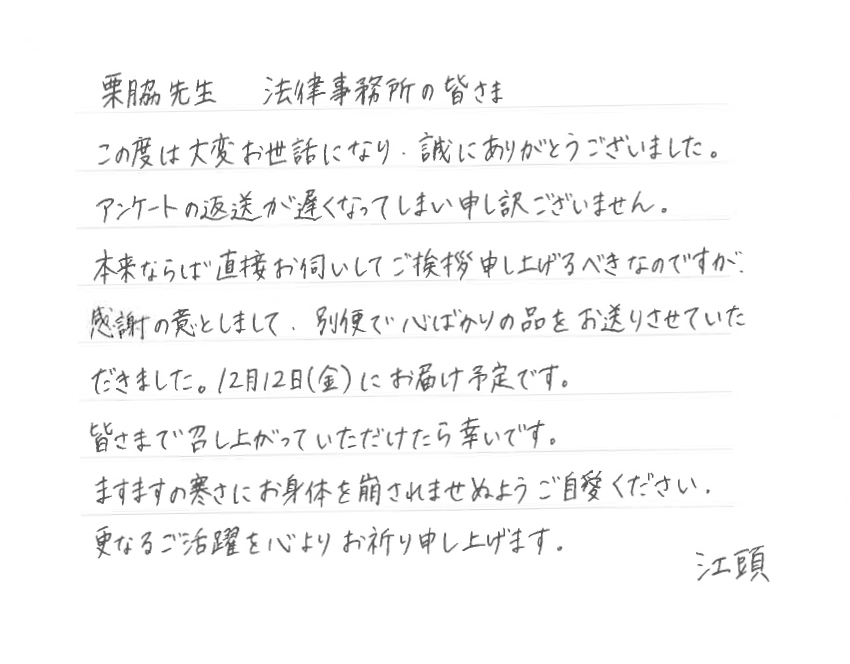 栗脇先生 法律事務所の皆さま
この度は大変お世話になり、誠にありがとうございました。
アンケートの返送が遅くなってしまい申し訳ございません。
本来ならば直接お伺いしてご挨拶申し上げるべきなのですが、
感謝の意としまして、別便で心ばかりの品をお送りさせていた
だきました。12月12日(金)にお届け予定です。
皆さまで召し上がっていただけたら幸いです。
ますますの寒さにお身体を崩されませぬようご自愛ください。
更なるご活躍を心よりお祈り申し上げます。
江頭